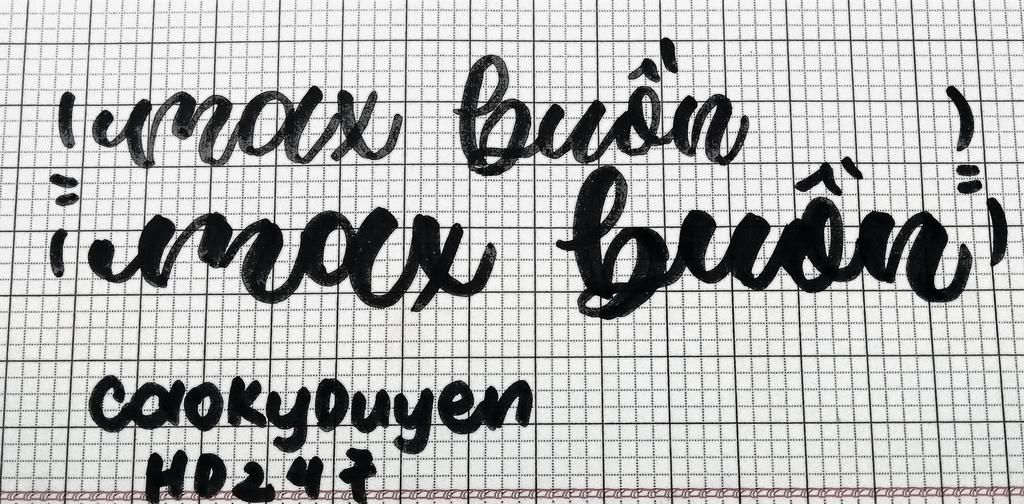 max buồn
max buồn
CaoKyDuyen
HD247